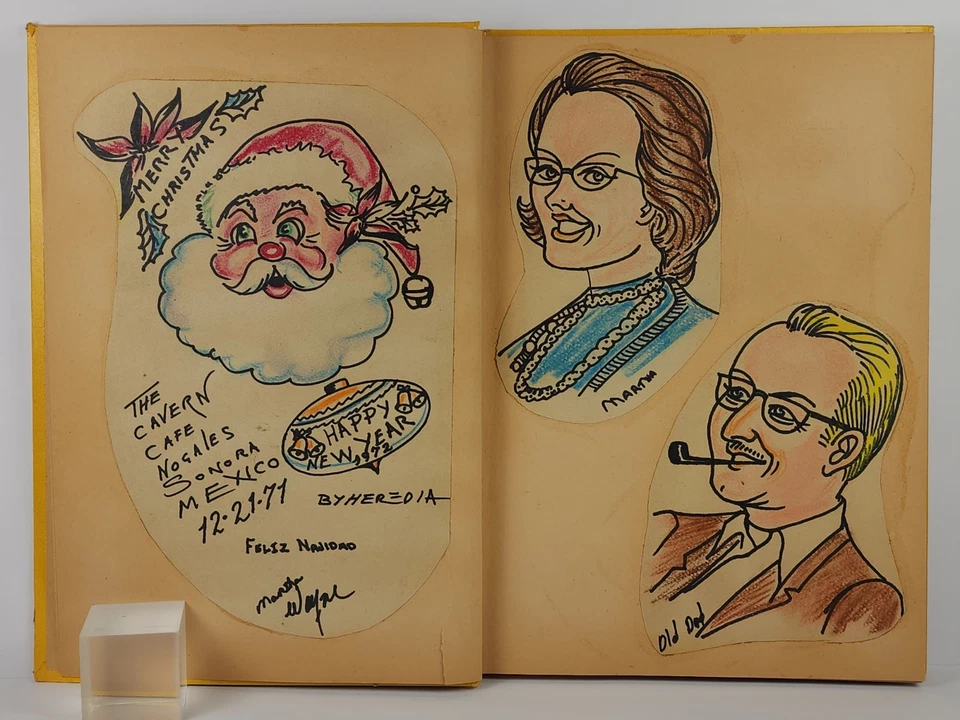 MERRY
CHRISTMAS
THE
CAVERN
CAFE
NOGALES
SONORA
MEXICO
12·21·71
HAPPY
NEW YEAR
1972
BY HEREDIA
FELIZ NAVIDAD
Martha
Wayne
MARTHA
Old Dad